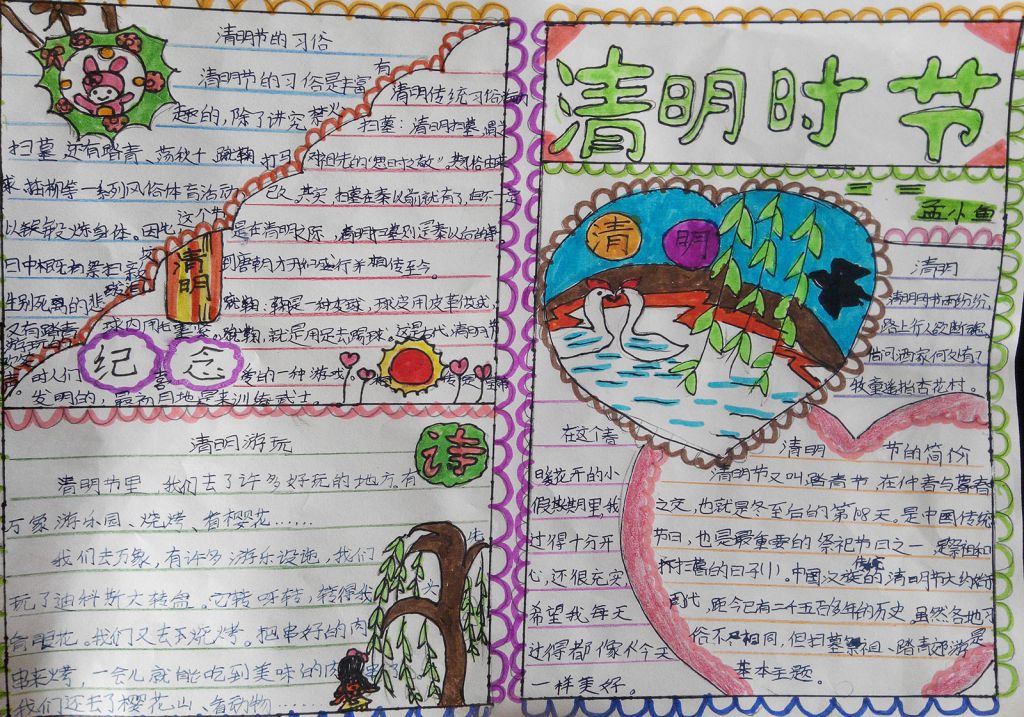 清明节的习俗
清明节的习俗是丰富有
趣的,除了讲究禁火
扫墓,还有踏青、荡秋千、蹴鞠、打马
球、插柳等一系列风俗体育活动
以锻炼身体。因此这个节
日中既有祭扫新
生别死离的悲
又有踏青
清明传统习俗
扫墓:清明扫墓,
对祖先的“思时之敬”。其习俗由来
已久。其实,扫墓在秦以前就有了,但不一定
是在清明之际,清明扫墓则是秦以后的事。
到唐朝才开始盛行并相传至今。
蹴鞠:鞠是一种皮球,球皮用皮革做成,
球内用毛塞紧。蹴鞠,就是用足去踢球。这是古代清明节
时人们喜爱的一种游戏。
发明的,最初目地是来训练武士。
清明
纪念
清明游玩
诗
清明节里,我们去了许多好玩的地方。有
万象游乐园、烧烤、看樱花……
我们去万象,有许多游乐设施,我们
玩了迪科斯大转盘。它转呀转,转得我
眼花。我们又去了烧烤。把串好的肉
串来烤,一会儿就能吃到美味的肉串了
我们还去了樱花山、看动物……
清明时节
孟小鱼
清明
清明
清明时节雨纷纷,
路上行人欲断魂。
借问酒家何处有?
牧童遥指杏花村。
在这个春
暖花开的小
假期里,我
过得十分开
心,还很充实,
希望我每天
过得都像今天
一样美好。
清明节的简介
清明节又叫踏青节,在仲春与暮春
之交,也就是冬至后的第108天。是中国传统
节日,也是最重要的祭祀节日之一,是祭祖和
扫墓的日子。中国汉族传统的清明节大约始于
周代,距今已有二千五百多年的历史,虽然各地习
俗不相同,但扫墓祭祖、踏青郊游是
基本主题。